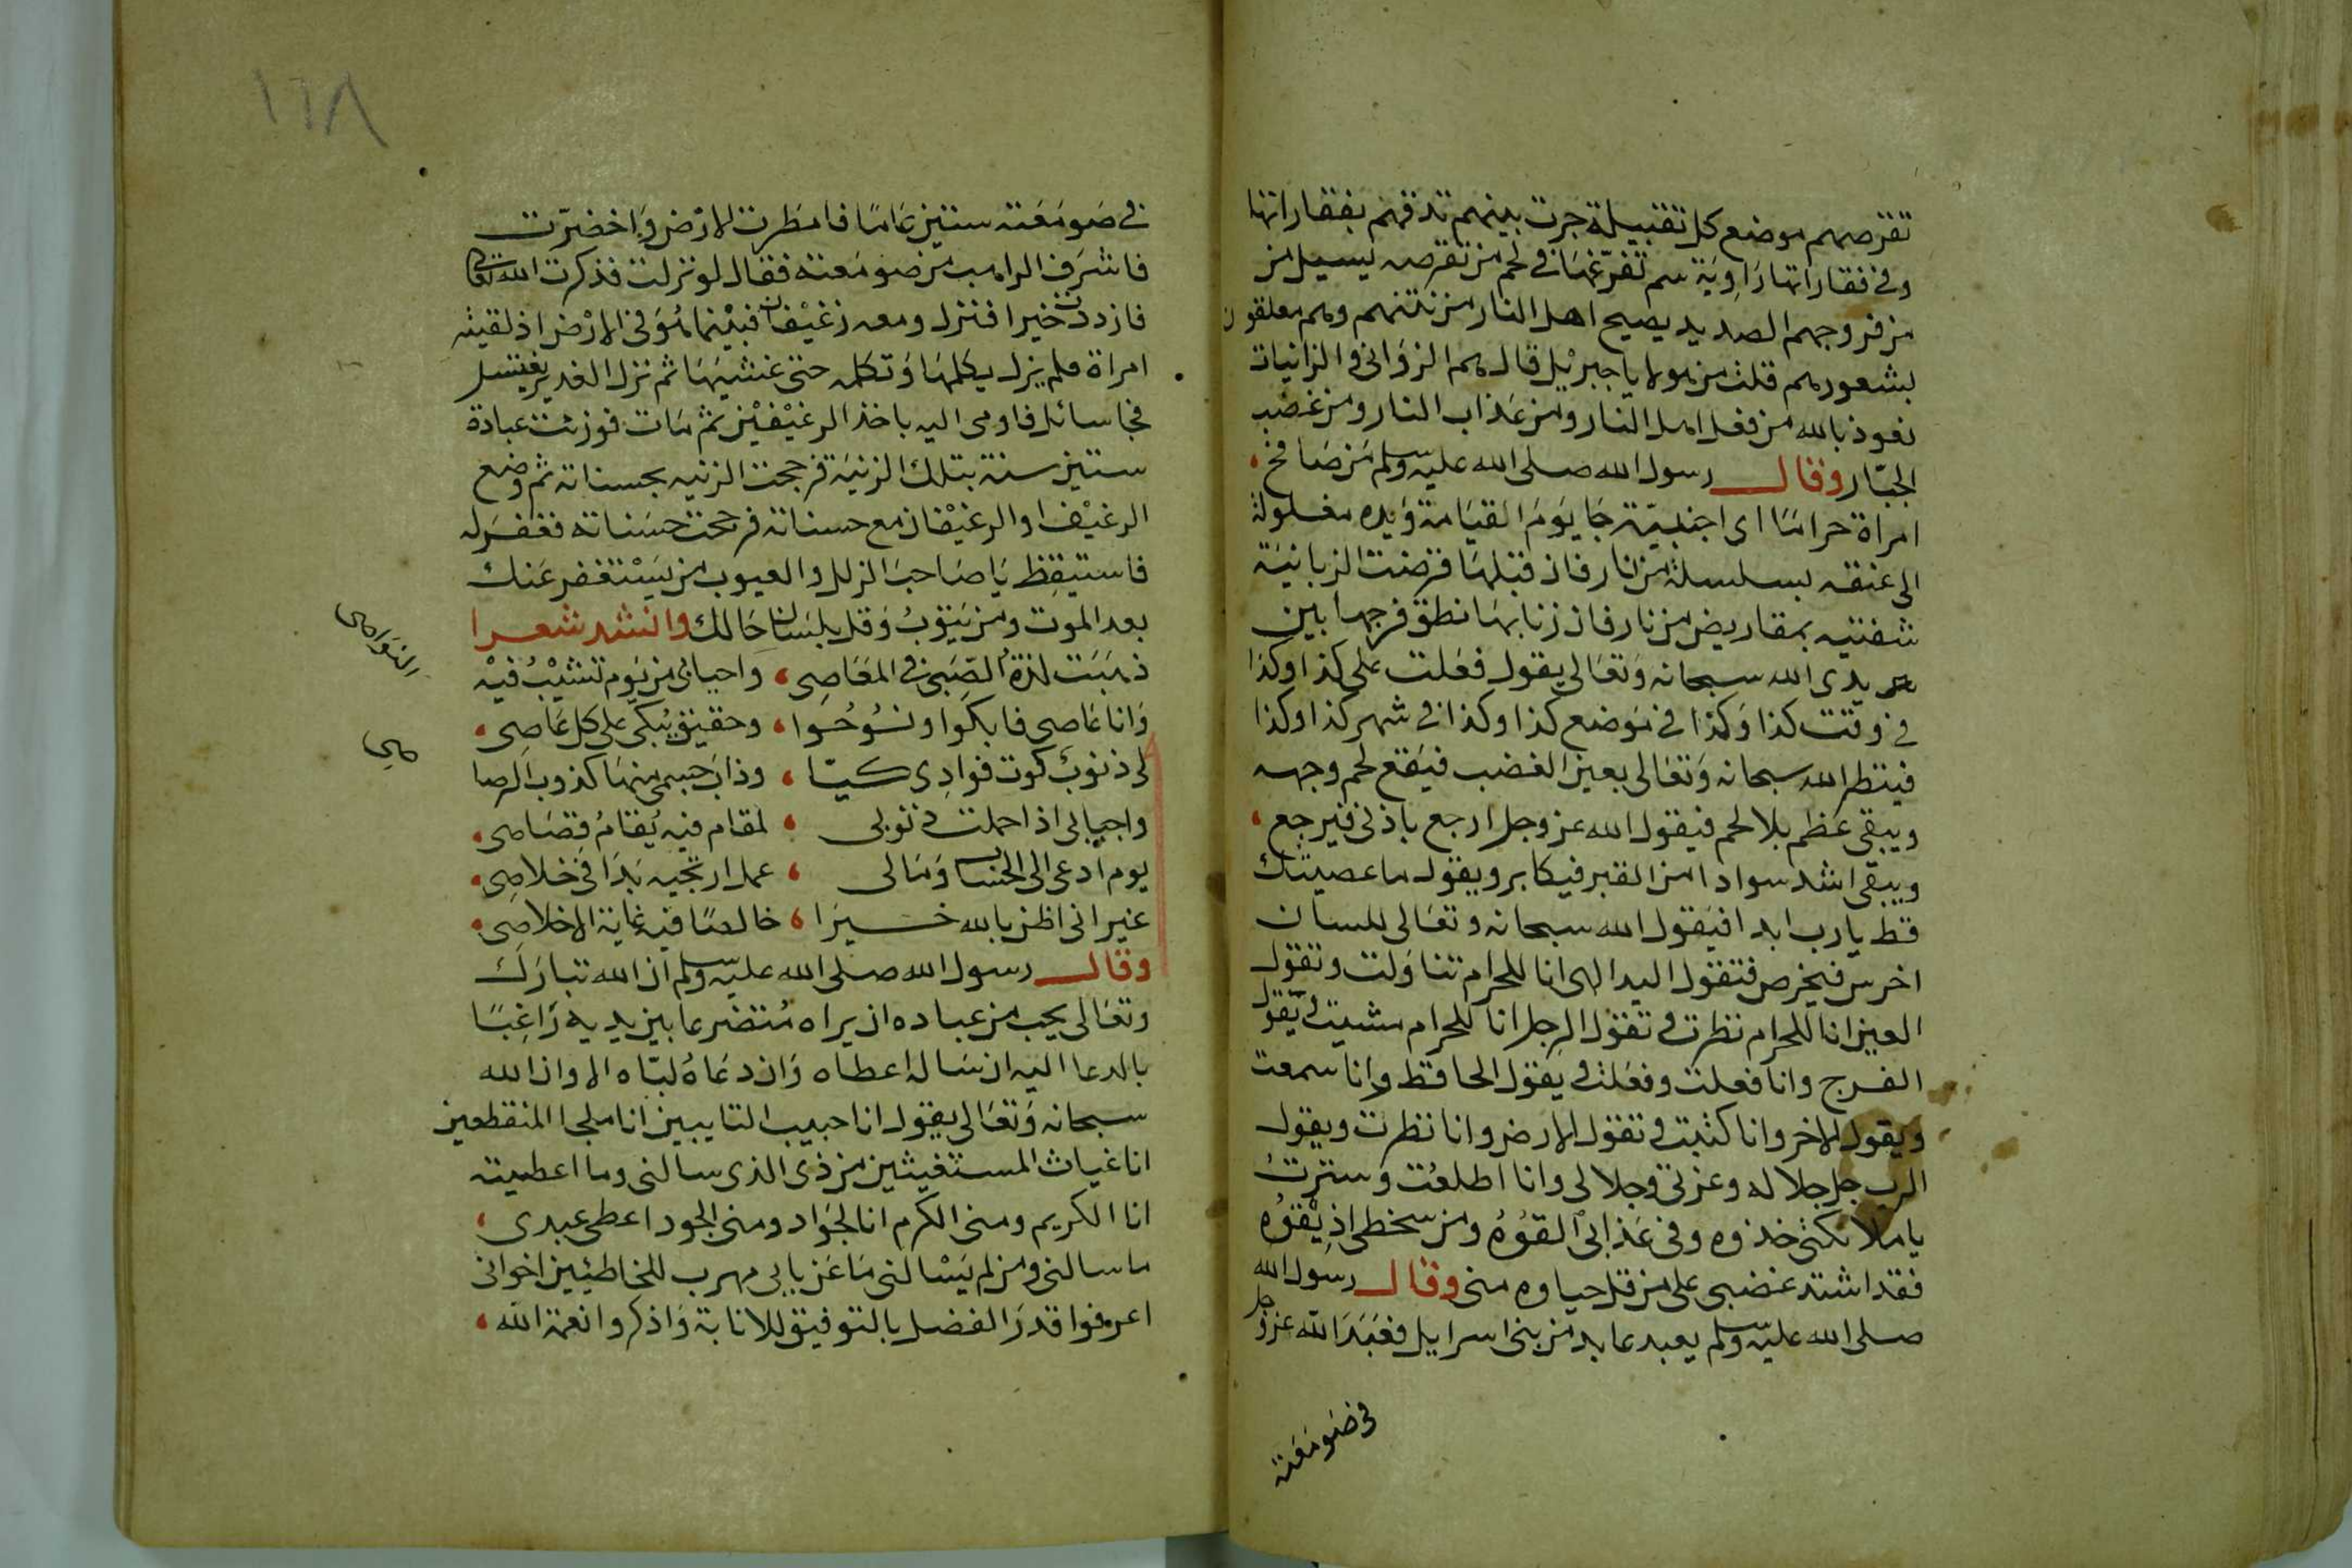 تقرصهم موضع كل تقبيلة جرت بينهم تدقهم بفقاراتها
وفي فقاراتها راوية سم تفرغها في لحم من تقرصه يسيل من
من فروجهم الصديد يصيح اهل النار من نتنهم وهم معلقون
بشعورهم قلت من هولا يا جبريل قال هم الزواني والزانيات
نعوذ بالله من فعل اهل النار ومن عذاب النار ومن غضب
الجبار وقال رسول الله صلى الله عليه وسلم من صافح
امراة حراما اى اجنبية جا يوم القيامة ويده مغلولة
الى عنقه بسلسلة من نار فان قبلها قرضت الزبانية
شفتيه بمقاريض من نار فان زنا بها نطق فرجها بين
يدى الله سبحانه وتعالى يقول فعلت على كذا وكذا
في وقت كذا وكذا في موضع كذا وكذا في شهر كذا وكذا
فينظر الله سبحانه وتعالى بعين الغضب فيقع لحم وجهه
ويبقى عظم بلا لحم فيقول الله عز وجل ارجع باذنى فيرجع
ويبقى اشد سوادا من القبر فيكابر ويقول ما عصيتك
قط يا رب ابدا فيقول الله سبحانه وتعالى للسان
اخرس فيخرص فتقول اليد الهى انا للحرام تناولت وتقول
العين انا للحرام نظرت وتقول الرجل انا للحرام مشيت ويقول
الفرج وانا فعلت وفعلت ويقول الحافظ وانا سمعت
ويقول الاخر وانا كتبت وتقول الارض وانا نظرت ويقول
الرب جل جلاله وعزتى وجلالى وانا اطلعت وسترت
يا ملائكتى خذوه وفي عذابى القوه ومن سخطى اذيقوه
فقد اشتد غضبى على من قل حياوه منى وقال رسول الله
صلى الله عليه وسلم يعبد عابد من بنى اسرايل فعبد الله عز وجل
في صومعته
١٦٨
في صومعته ستين عاما فامطرت الارض واخضرت
فاشرف الراهب من صومعته فقال لو نزلت فذكرت الله تعالى
فازددت خيرا فنزل ومعه رغيفان فبينما هو في الارض اذ لقيته
امراة فلم يزل يكلمها وتكلمه حتى غشيها ثم نزل الغدير يغتسل
فجا سائل فاومى اليه ياخذ الرغيفين ثم مات فوزنت عبادة
ستين سنة بتلك الزنية فرجحت الزنيه بحسناته ثم وضع
الرغيف او الرغيفان مع حسناته فرجحت حسناته فغفر له
فاستيقظ يا صاحب الزلل والعيوب من يستغفر عنك
بعد الموت ومن يتوب وقل بلسان حالك وانشد شعرا
ذهبت لذة الصبى في المعاصى واحيائى من يوم تشيب فيه
النواصى
وانا عاصى فابكوا ونوحوا وحقيق يبكى على كل عاصى
لى ذنوب كوت فوادى كيا وذاب جسمى منها كذوب الرصا
صي
واحيائى اذا حملت ذنوبى لمقام فيه يقام قصاصى
يوم ادعى الى الحساب ومالى عمل ارتجيه بدا في خلاصى
غير انى اظن بالله خيرا خالصا فيه غاية الاخلاصى
وقال رسول الله صلى الله عليه وسلم ان الله تبارك
وتعالى يحب من عباده ان يراه متضرعا بين يديه راغبا
بالدعا اليه ان ساله اعطاه وان دعاه لباه الا وان الله
سبحانه وتعالى يقول انا حبيب التايبين انا ملجا المنقطعين
انا غياث المستغيثين من ذى الذى سالنى وما اعطيته
انا الكريم ومنى الكرم انا الجواد ومنى الجود اعطى عبدى
ما سالنى ومن لم يسالنى ما عن بابى مهرب للخاطئين اخوانى
اعرفوا قدر الفضل بالتوفيق للانابة واذكروا نعمة الله